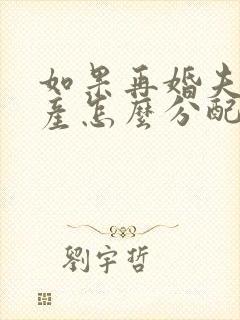 如果再婚夫
產怎麼分配
劉宇哲